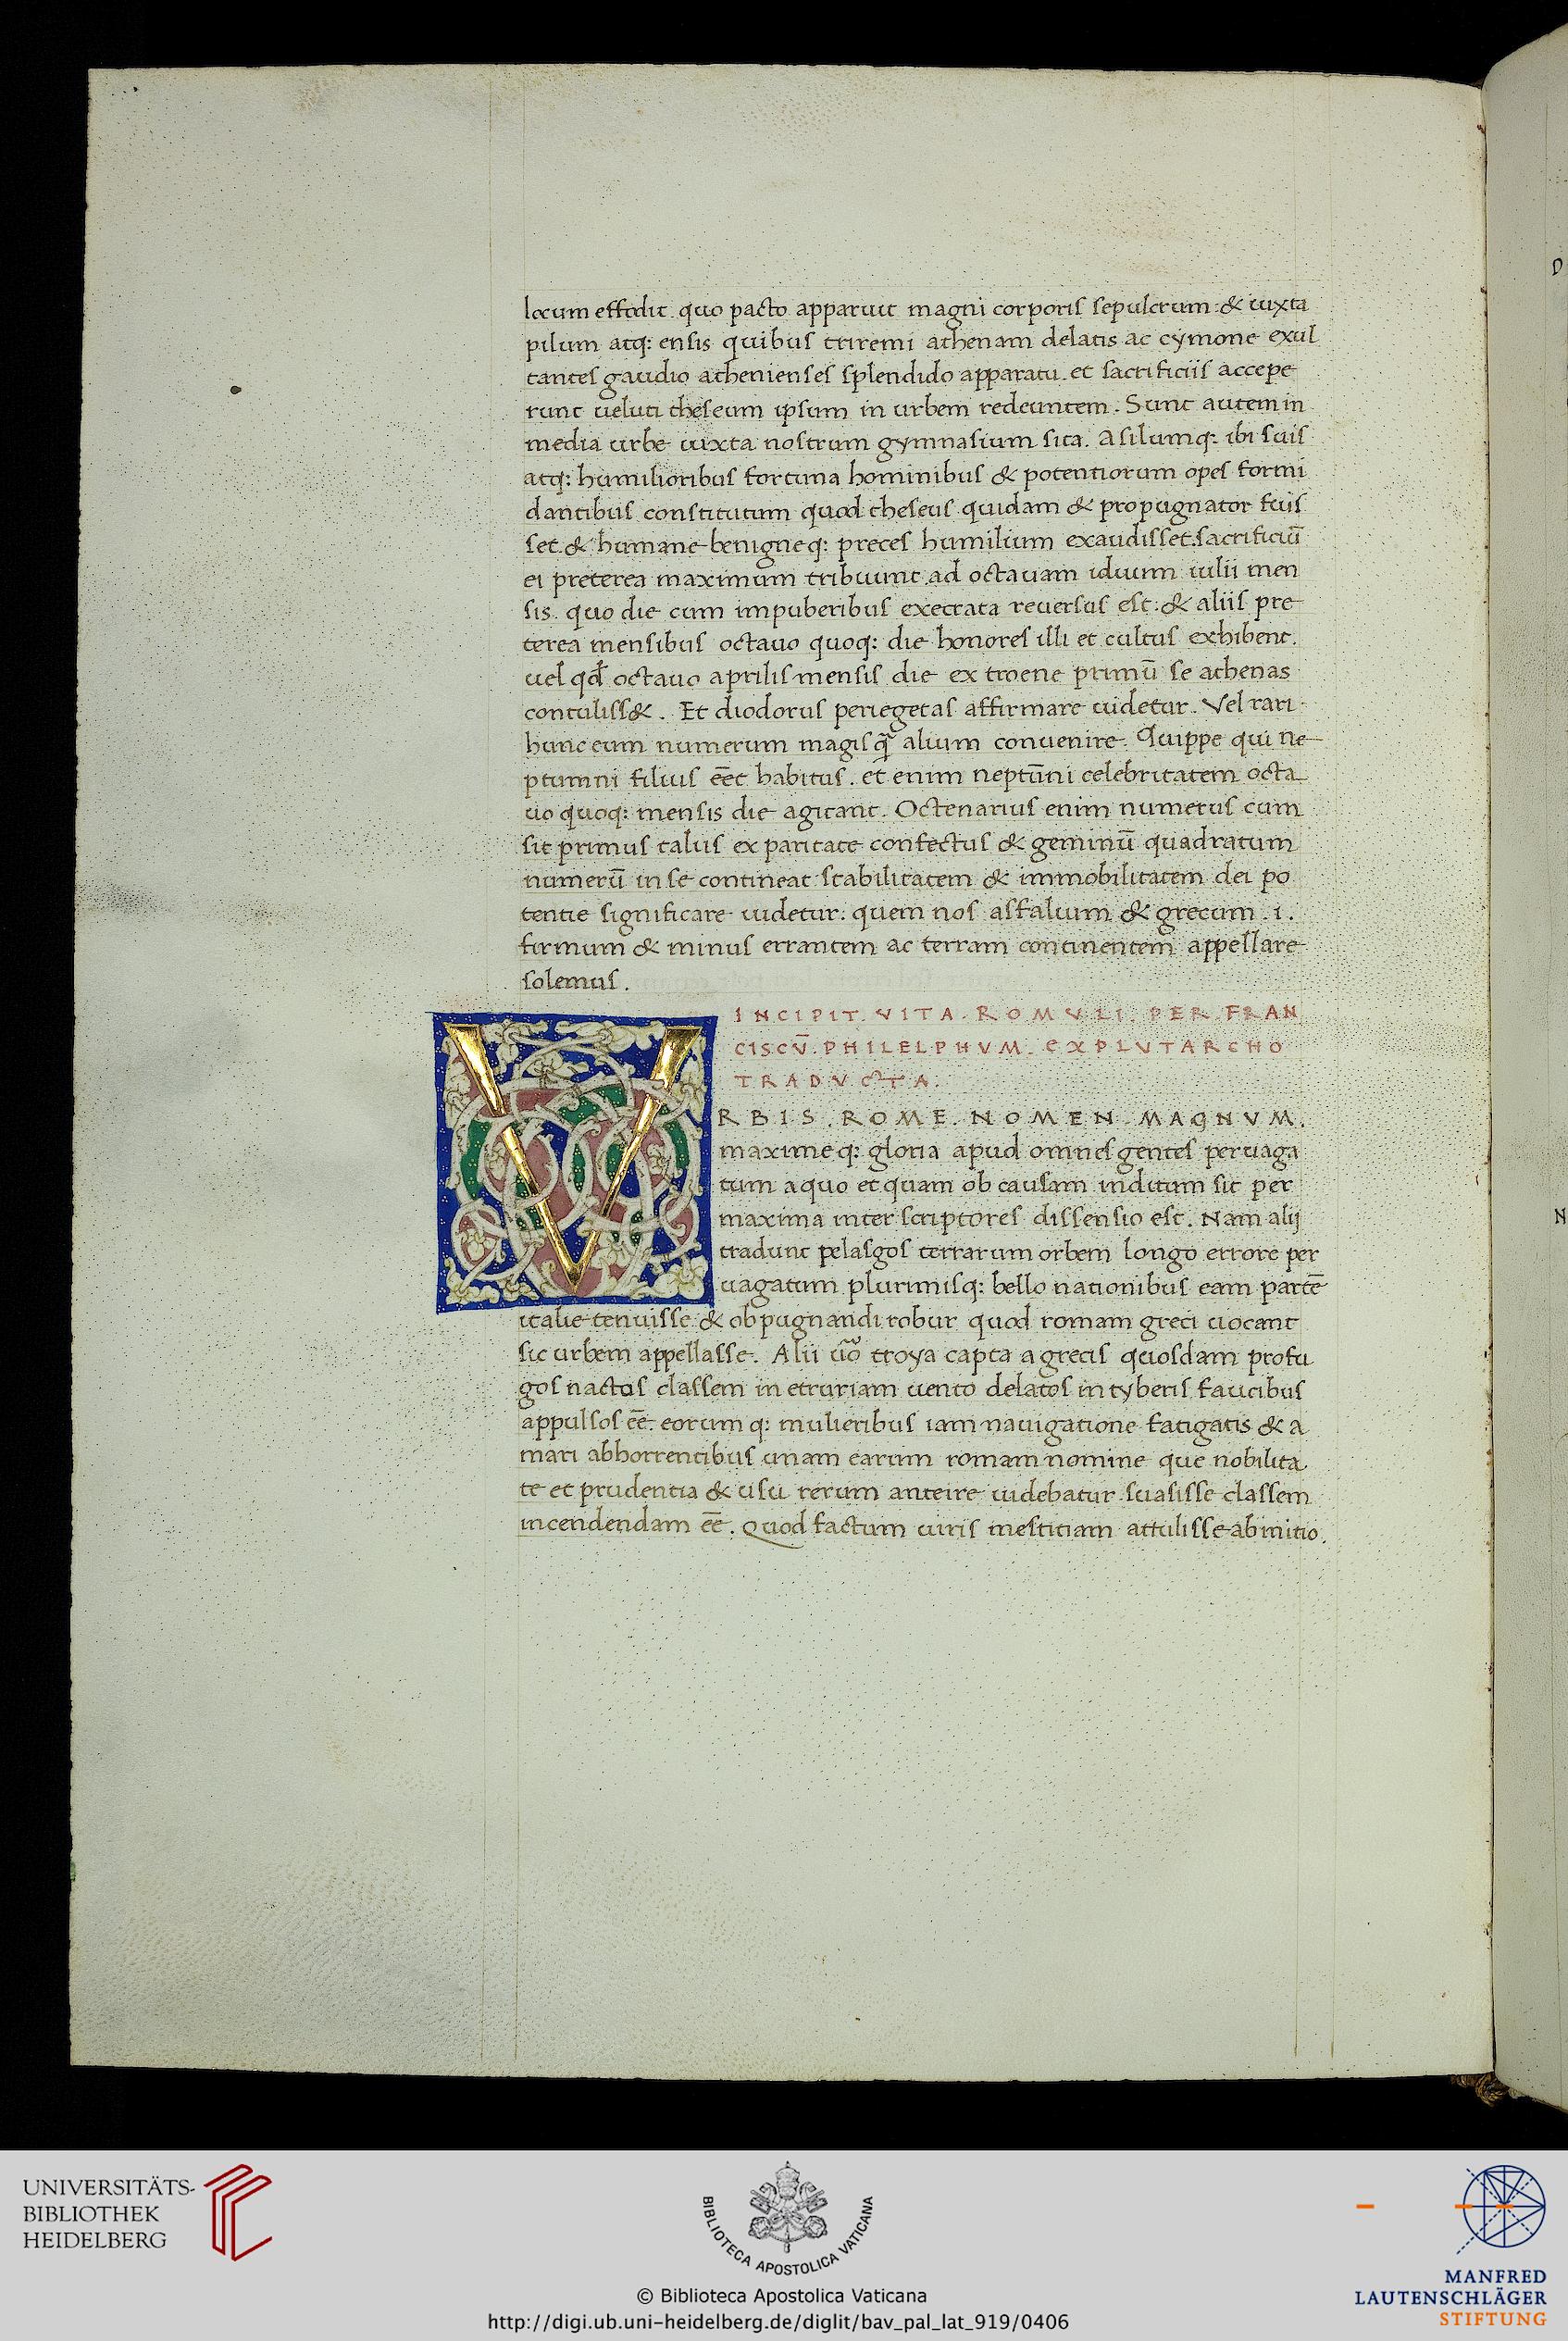 locum effodit. quo pacto apparuit magni corporis sepulcrum: & iuxta
pilum atq: ensis quibus triremi athenam delatis ac cymone exul
tantes gaudio athenienses splendido apparatu. et sacrificiis accepe
runt veluti theseum ipsum in urbem redeuntem. Sunt autem in
media urbe iuxta nostrum gymnasium sita. Asilumq: ibi suis
atq: humilioribus fortuna hominibus & potentiorum opes formi
dantibus constitutum quod theseus quidam & propugnator fuis
set. & humane benigneq: preces humilium exaudisset. sacrificiū
ei preterea maximum tribuunt ad octavam iduum iulii men
sis. quo die cum impuberibus execrata reversus est: & aliis pre
terea mensibus octavo quoq: die honores illi et cultus exhibent.
uel qđ octavo aprilis mensis die ex troene primū se athenas
contuliss&. Et diodorus periegetas affirmare uidetur. Vel rati
hunc eum numerum magis q̄ alium convenire. Quippe qui ne
ptumni filius eēt habitus. et enim neptūni celebritatem octa
uo quoq: mensis die agitant. Octenarius enim numerus cum
sit primus talus ex paritate confectus & geminū quadratum
numerū in se contineat stabilitatem & immobilitatem dei po
tentie significare uidetur: quem nos asfalium & grecum .i.
firmum & minus errantem ac terram continentem appellare
solemus.
INCIPIT. VITA. ROMVLI. PER. FRAN
CISCV̄. PHILELPHVM. EX PLVTARCHO
TRADVCTA.
VRBIS. ROME. NOMEN. MAGNVM.
maximeq: gloria apud omnes gentes pervaga
tum a quo et quam ob causam inditum sit per
maxima inter scriptores dissensio est. Nam alij
tradunt pelasgos terrarum orbem longo errore per
uagatum plurimisq: bello nationibus eam partē
italie tenuisse & ob pugnandi robur quod romam greci uocant
sic urbem appellasse. Alii ūo troya capta a grecis quosdam profu
gos nactos classem in etruriam uento delatos in tyberis faucibus
appulsos eē. eorumq: mulieribus iam navigatione fatigatis & a
mari abhorrentibus unam earum romam nomine que nobilita
te et prudentia & usu rerum anteire uidebatur suasisse classem
incendendam eē. Quod factum uiris mestitiam attulisse ab initio.
UNIVERSITÄTS-
BIBLIOTHEK
HEIDELBERG
BIBLIOTECA APOSTOLICA VATICANA
© Biblioteca Apostolica Vaticana
http://digi.ub.uni-heidelberg.de/diglit/bav_pal_lat_919/0406
MANFRED
LAUTENSCHLÄGER
STIFTUNG